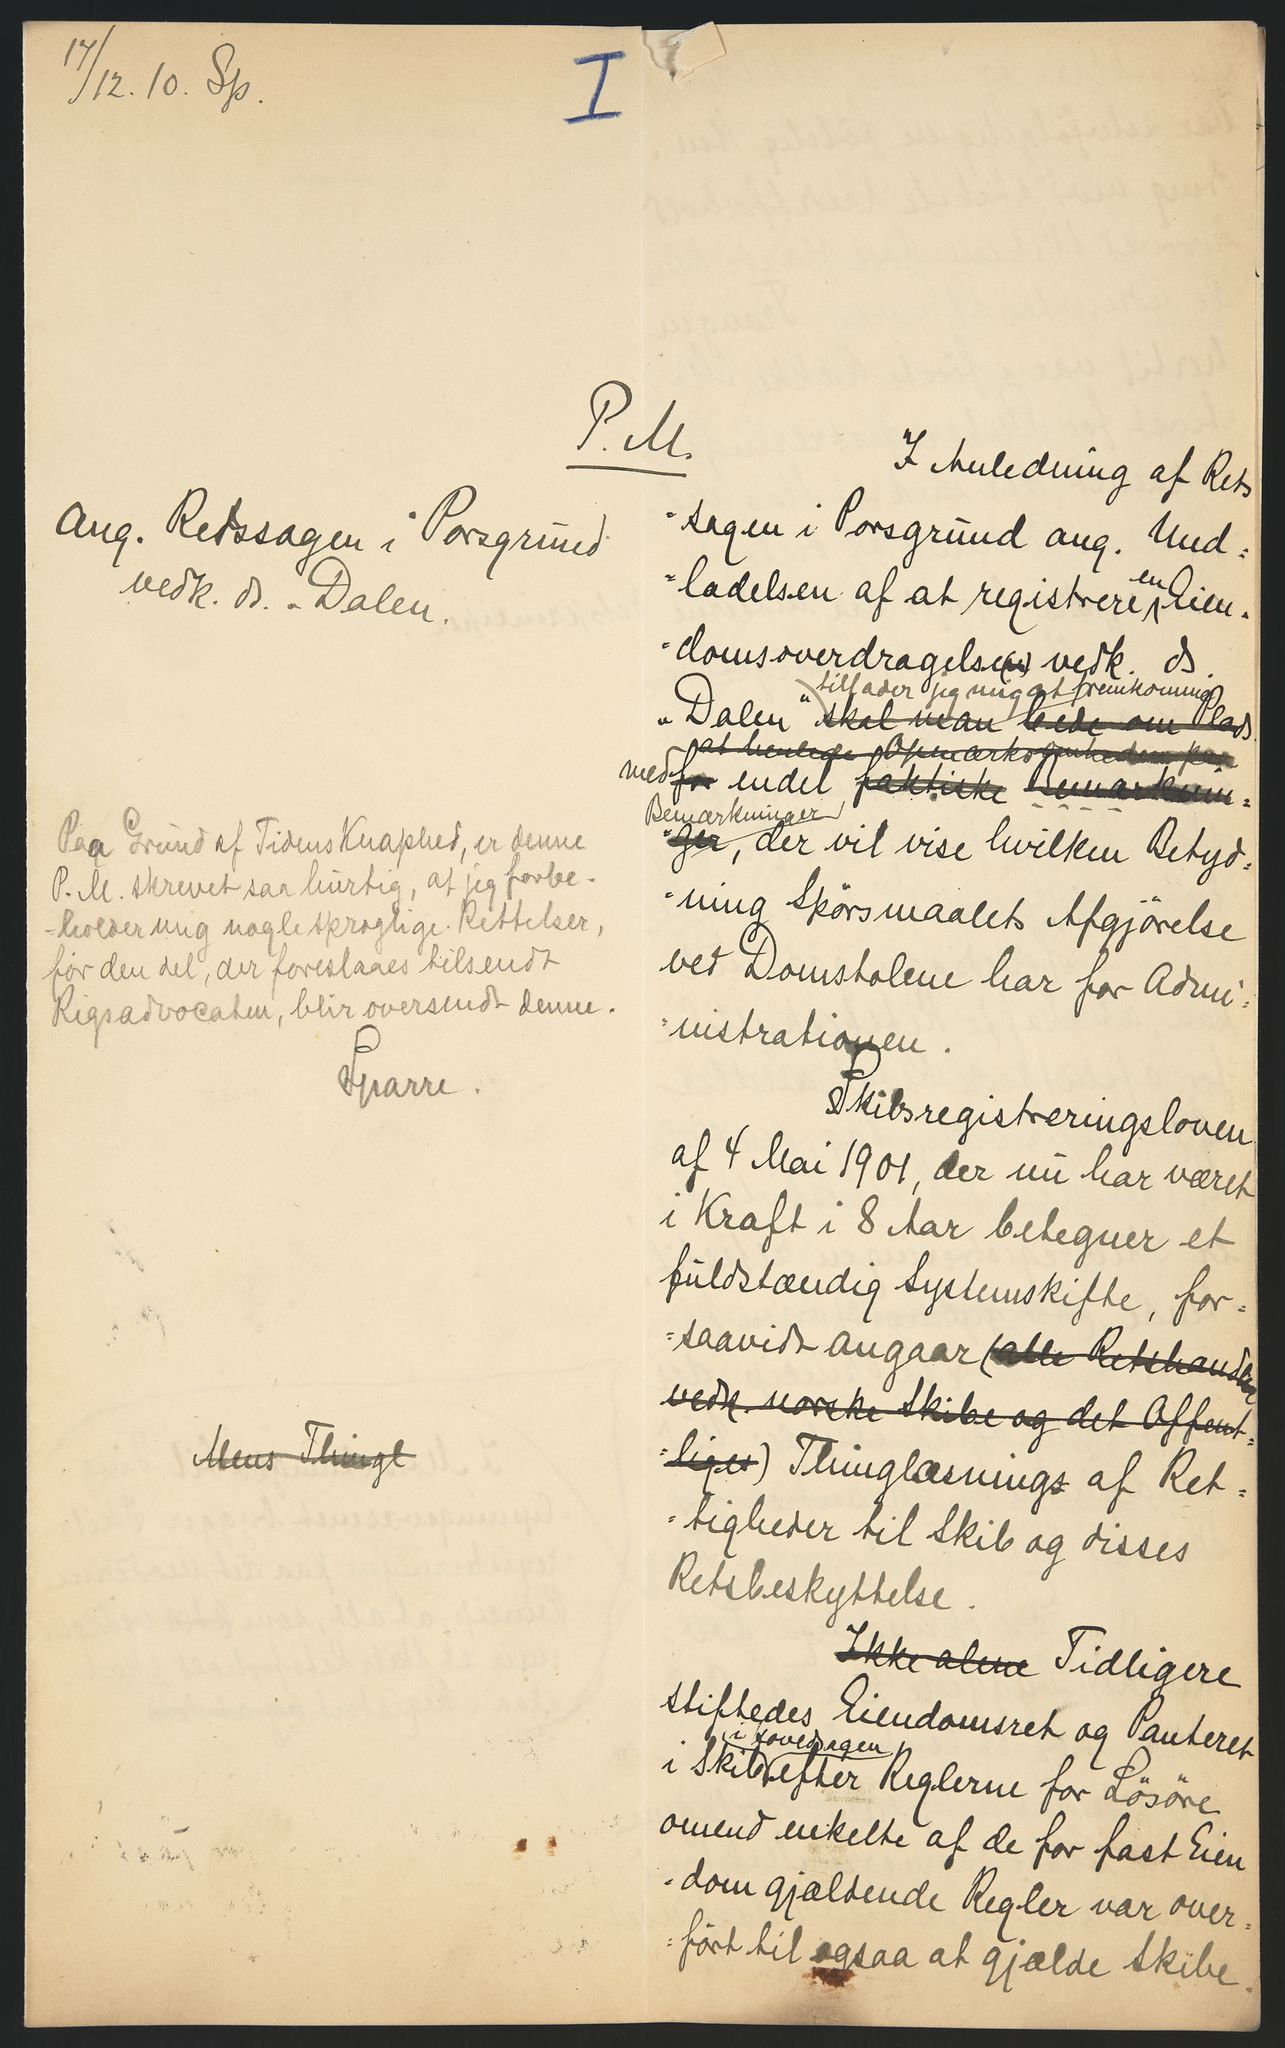 17/12. 10. Sp.
I
P. M.
Ang. Retssagen i Porsgrund
vedk. ds. „Dalen.
Paa Grund af Tidens Knaphed, er denne
P. M. skrevet saa hurtig, at jeg forbe-
-holder mig nogle sproglige Rettelser,
før den del, der foreslaaes tilsendt
Rigsadvocaten, blir oversendt denne.
Sparre.
Mens Thingl
I Anledning af Rets
=sagen i Porsgrund ang. Und=
=ladelsen af at registrere en Eien-
=domsoverdragelse(n) vedk. ds.
tillader jeg mig at fremkomme
„Dalen" skal man bede om Plads
at henlede Opmærksomheden paa
med for endel faktiske Bemærknin=
Bemærkninger
=ger, der vil vise hvilken Betyd=
=ning Spörsmaalets Afgjörelse
ved Domstolene har for Admi=
=nistrationen.
Skibsregistreringsloven
af 4 Mai 1901, der nu har været
i Kraft i 8 Aar betegner et
fuldstændig Systemskifte, for=
=saavidt angaar (alle Retshandler
vedk. norske Skibe og det Offent=
=liges) Thinglæsnings af Ret=
=tigheder til Skib og disses
Retsbeskyttelse.
Ikke alene Tidligere
stiftedes Eiendomsret og Panteret
i Hovedsagen
i Skib efter Reglerne for Lösöre
omend enkelte af de for fast Eien
=dom gjældende Regler var over=
=fört til ogsaa at gjælde Skibe.